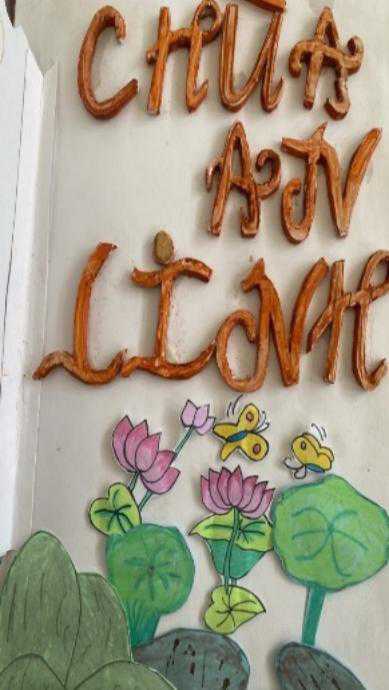 CHÙA
AN
LINH